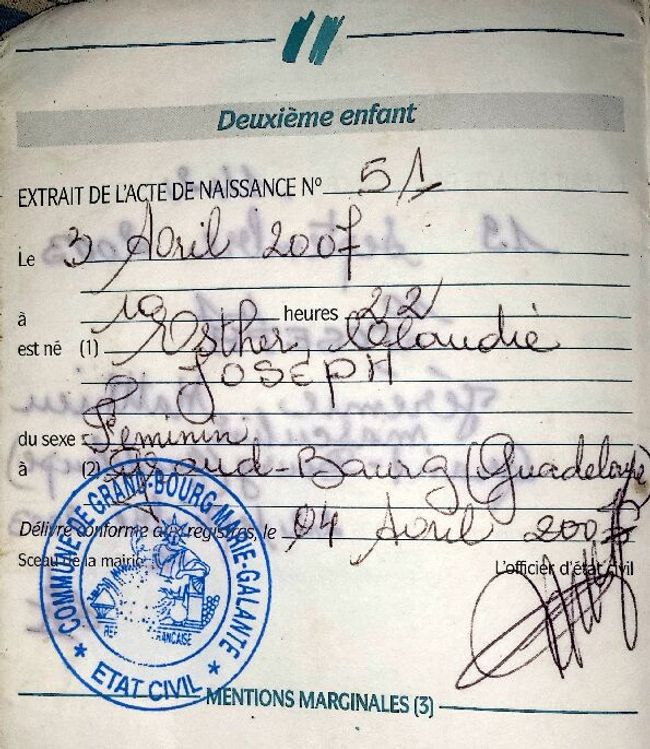 11
Deuxième enfant
EXTRAIT DE L'ACTE DE NAISSANCE N° 51
Le 3 Avril 2007
à 19 heures 22
est né (1) Esther, Claudie
JOSEPH
du sexe Feminin
à (2) Grand-Bourg (Guadeloupe)
Délivré conforme aux registres, le 04 Avril 2007
Sceau de la mairie L'officier d'état civil
COMMUNE DE GRAND-BOURG MARIE-GALANTE
FRANÇAISE
* ETAT CIVIL *
MENTIONS MARGINALES (3)